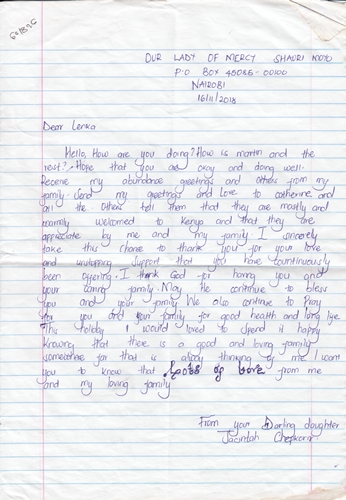 OUR LADY OF MERCY SHAURI MOYO
P.O BOX 45025-00100
NAIROBI
16/11/2018
Dear Lenka
Hello, How are you doing? How is martin and the
rest? Hope that you are okay and doing well.
Receive my abundance greetings and others from my
family. Send my greetings and love to catherine and
all the others tell them that they are mostly and
warmly welcomed to Kenya and that they are
appreciate by me and my family I sincerely
take this chance to thank you for your love
and unstopping support that you have continuously
been offering. I thank God for having you and
your caring family. May He continue to bless
you and your family. We also continue to Pray
for you and your family for good health and long life
This holiday I would loved to spend it happy
Knowing that there is a good and loving family
somewhere for that is always thinking of me I want
you to know that Loads of love from me
and my loving family
From your Darling daughter
Jacintah Chepkorir